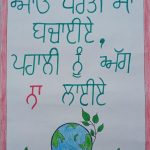 ਆਓ ਧਰਤੀ ਮਾਂ
ਬਚਾਈਏ,
ਪਰਾਲੀ ਨੂੰ ਅੱਗ
ਨਾ ਲਾਈਏ